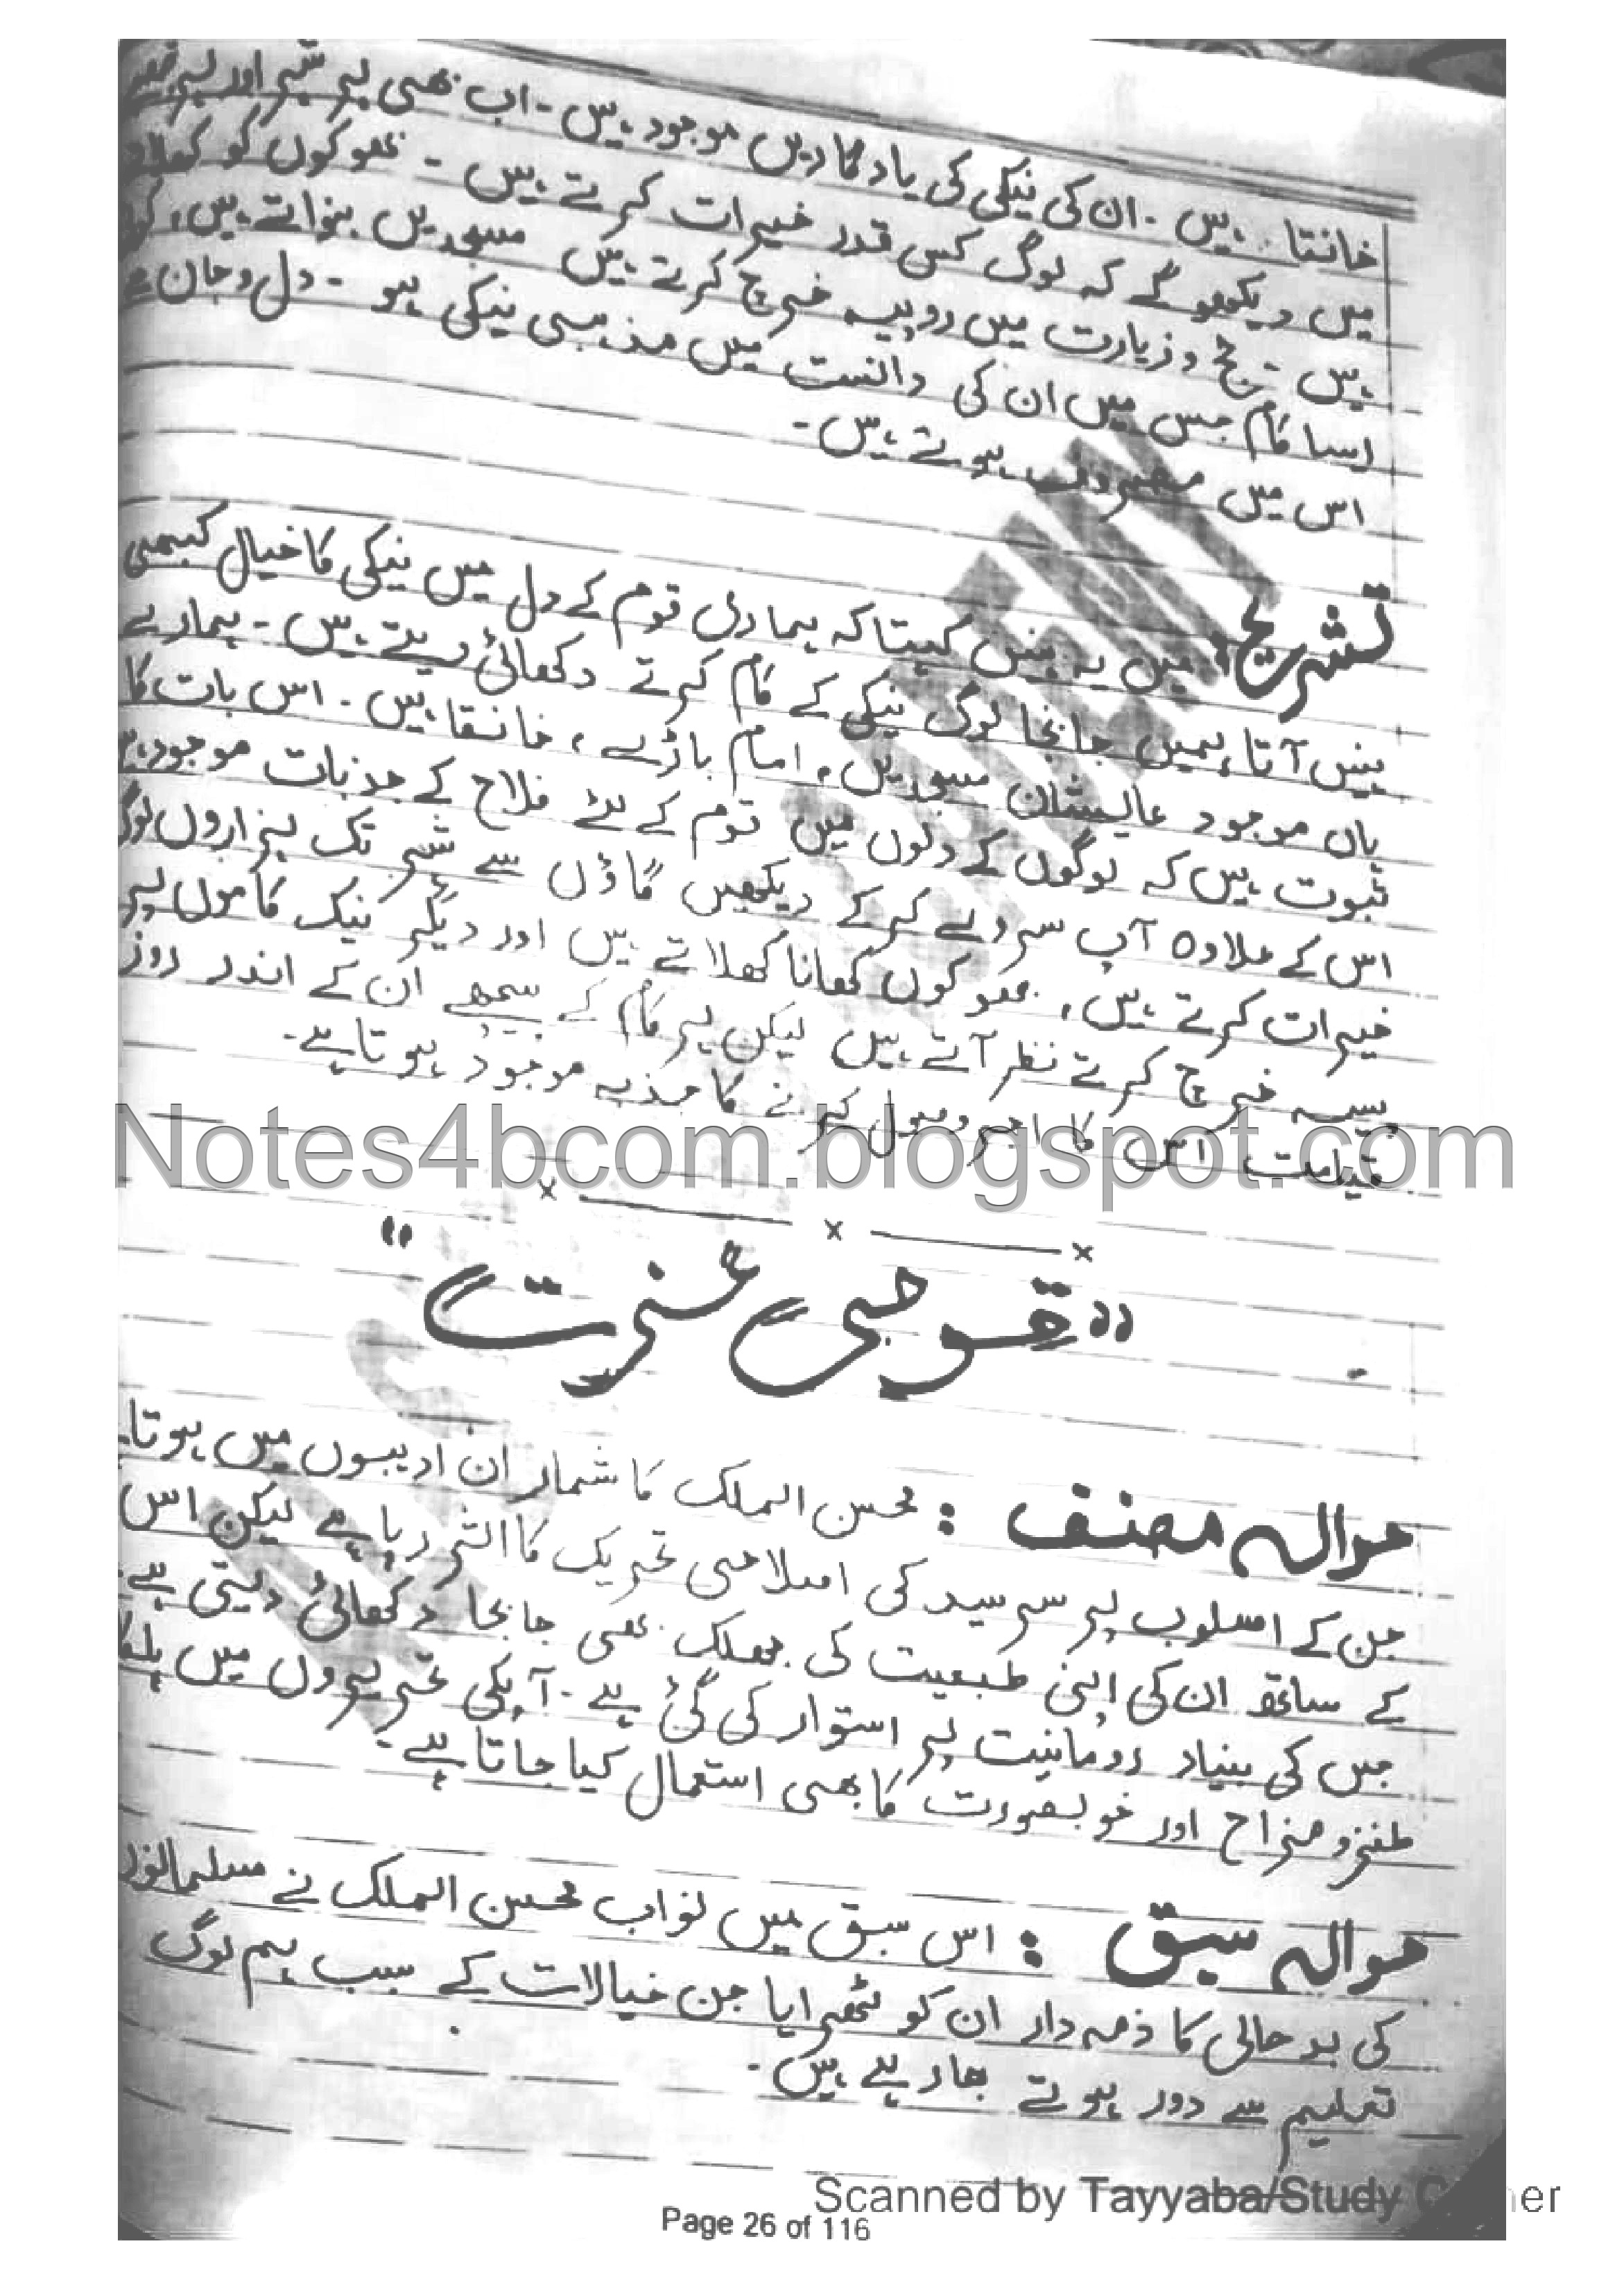 خانقا ہیں۔ ان کی نیکی کی یادگاریں موجود ہیں۔ اب بھی ہر شہر اور ہر
میں دیکھو گے کہ لوگ کس قدر خیرات کرتے ہیں۔ بھوکوں کو
ہیں۔ حج و زیارت میں روپیہ خرچ کرتے ہیں مسجدیں بنواتے ہیں،
ایسا کام جس میں ان کی دانست میں مذہبی نیکی ہو۔ دل و جان
اس میں مصروف ہوتے ہیں۔
تشریح: میں یہ نہیں کہتا کہ ہماری قوم کے دل میں نیکی کا خیال کبھی
نہیں آتا، ہمیں جا بجا لوگ نیکی کے کام کرتے دکھائی دیتے ہیں۔ ہمارے
ہاں موجود عالیشان مسجدیں، امام باڑے، خانقا ہیں۔ اس بات کا
ثبوت ہیں کہ لوگوں کے دلوں میں قوم کے لئے فلاح کے جذبات موجود ہیں
اس کے علاوہ آپ سروے کر کے دیکھیں گاؤں سے شہر تک ہزاروں لوگ
خیرات کرتے ہیں، بھوکوں کھانا کھلاتے ہیں اور دیگر نیک کاموں پر
پیسہ خرچ کرتے نظر آتے ہیں لیکن ہر کام کے پیچھے ان کے اندر روز
قیامت اس کا اجر وصول کرنے کا جذبہ موجود ہوتا ہے۔
Notes4bcom.blogspot.com
"قومی عزت"
حوالہ مصنف: محسن الملک کا شمار ان ادیبوں میں ہوتا
جن کے اسلوب پر سرسید کی اصلاحی تحریک کا اثر رہا ہے لیکن اس
کے ساتھ ان کی اپنی طبعیت کی جھلک بھی جا بجا دکھائی دیتی ہے
جس کی بنیاد رومانیت پر استوار کی گئی ہے۔ آپکی تحریروں میں ہلکا
طنز و مزاح اور خوبصورت کا بھی استعمال کیا جاتا ہے۔
حوالہ سبق: اس سبق میں نواب محسن الملک نے مسلمانوں
کی بدحالی کا ذمہ دار ان کو ٹھرایا جن خیالات کے سبب ہم لوگ
تعلیم سے دور ہوتے جا رہے ہیں۔
Scanned by Tayyaba/Study
Page 26 of 116